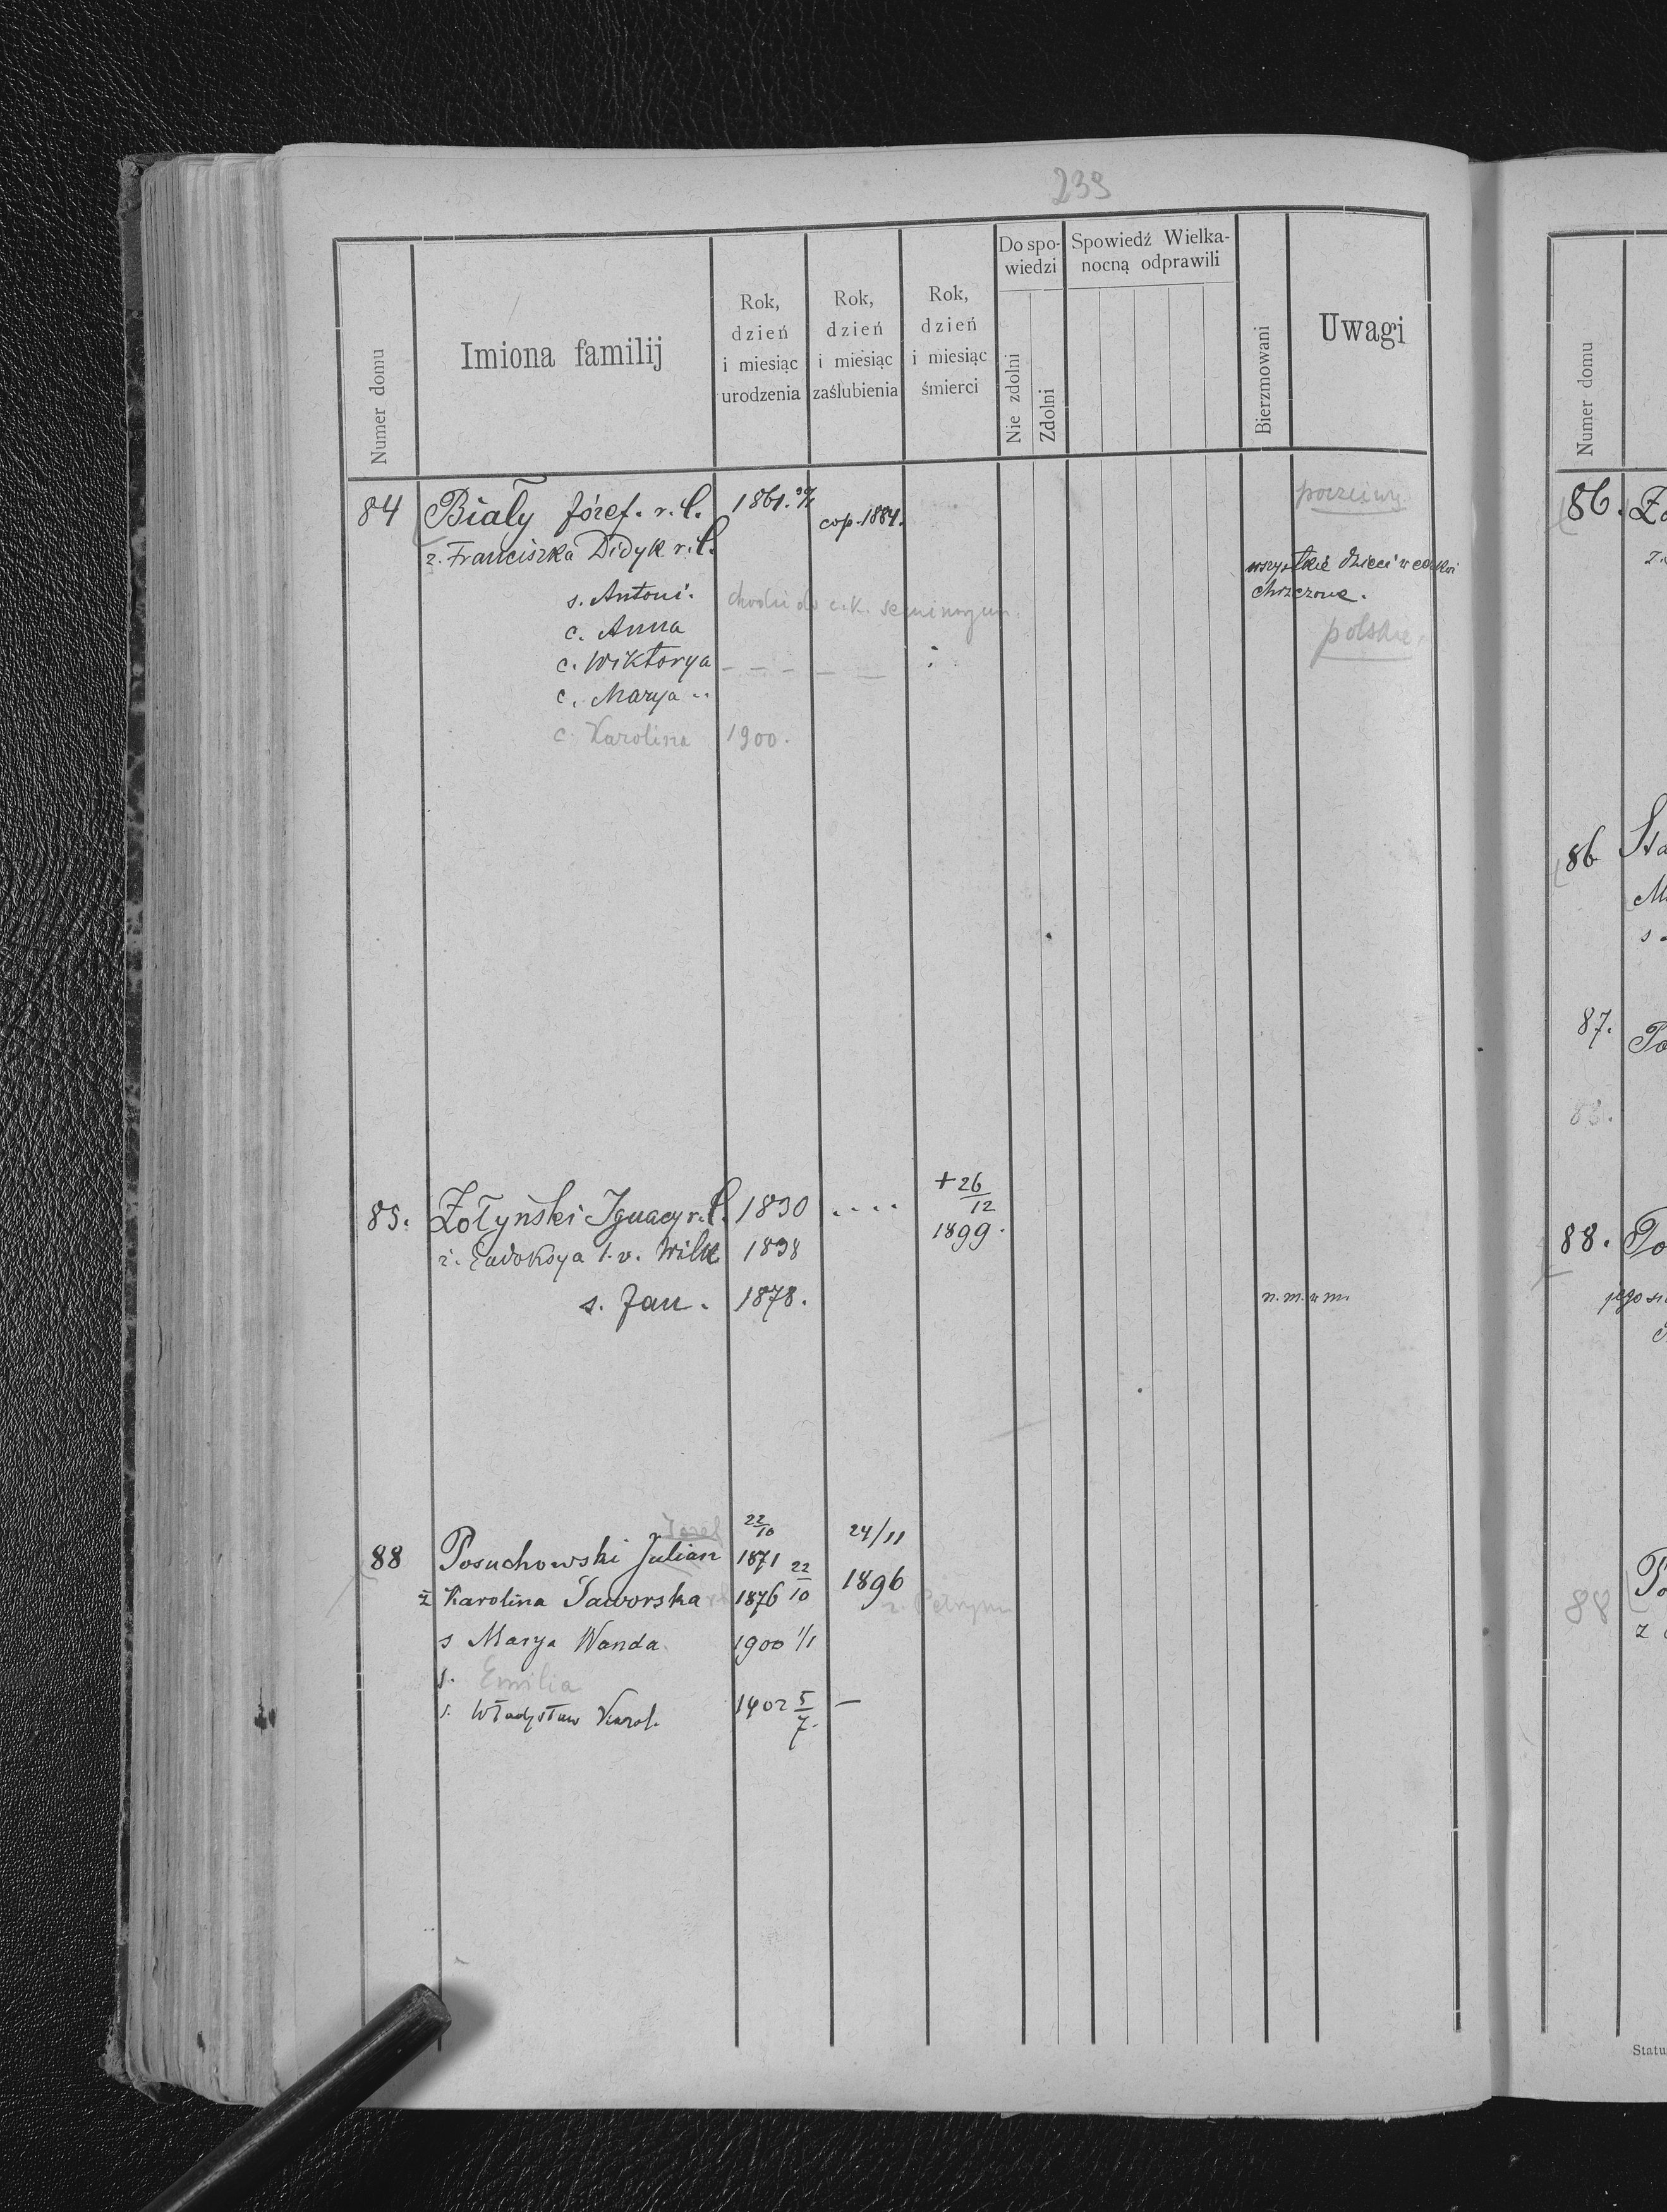 239
Numer domu
Imiona familij
Rok, dzień i miesiąc urodzenia
Rok, dzień i miesiąc zaślubienia
Rok, dzień i miesiąc śmierci
Do spowiedzi
Nie zdolni
Zdolni
Spowiedź Wielkanocną odprawili
Bierzmowani
Uwagi
84 Biały Józef. r. l. 1861. cop. 1884. poczciwy
ż. Franciszka Didyk r. l.
wszystkie dzieci w cerkwi
s. Antoni. chodzi do c. k. seminaryum
chrzczone.
c. Anna
polskie
c. Wiktorya — — — — —
c. Marya
c. Karolina 1900.
85. Żołyński Ignacy r. l. 1830 . . . . + 26/12
1899.
ż. Eudoksya 1. v. Wilk 1838
s. Jan. 1878. n. m. u m.
Józef 22/10 24/11
88 Posuchowski Julian 1871
ż Karolina Jaworska 1876 22/10 1896
s Marya Wanda 1900 1/1
s. Emilia
s. Władysław Karol. 1902 5/7. —
Numer domu
86.
86
87.
88.
88. Po
jego
88 Po
Statu